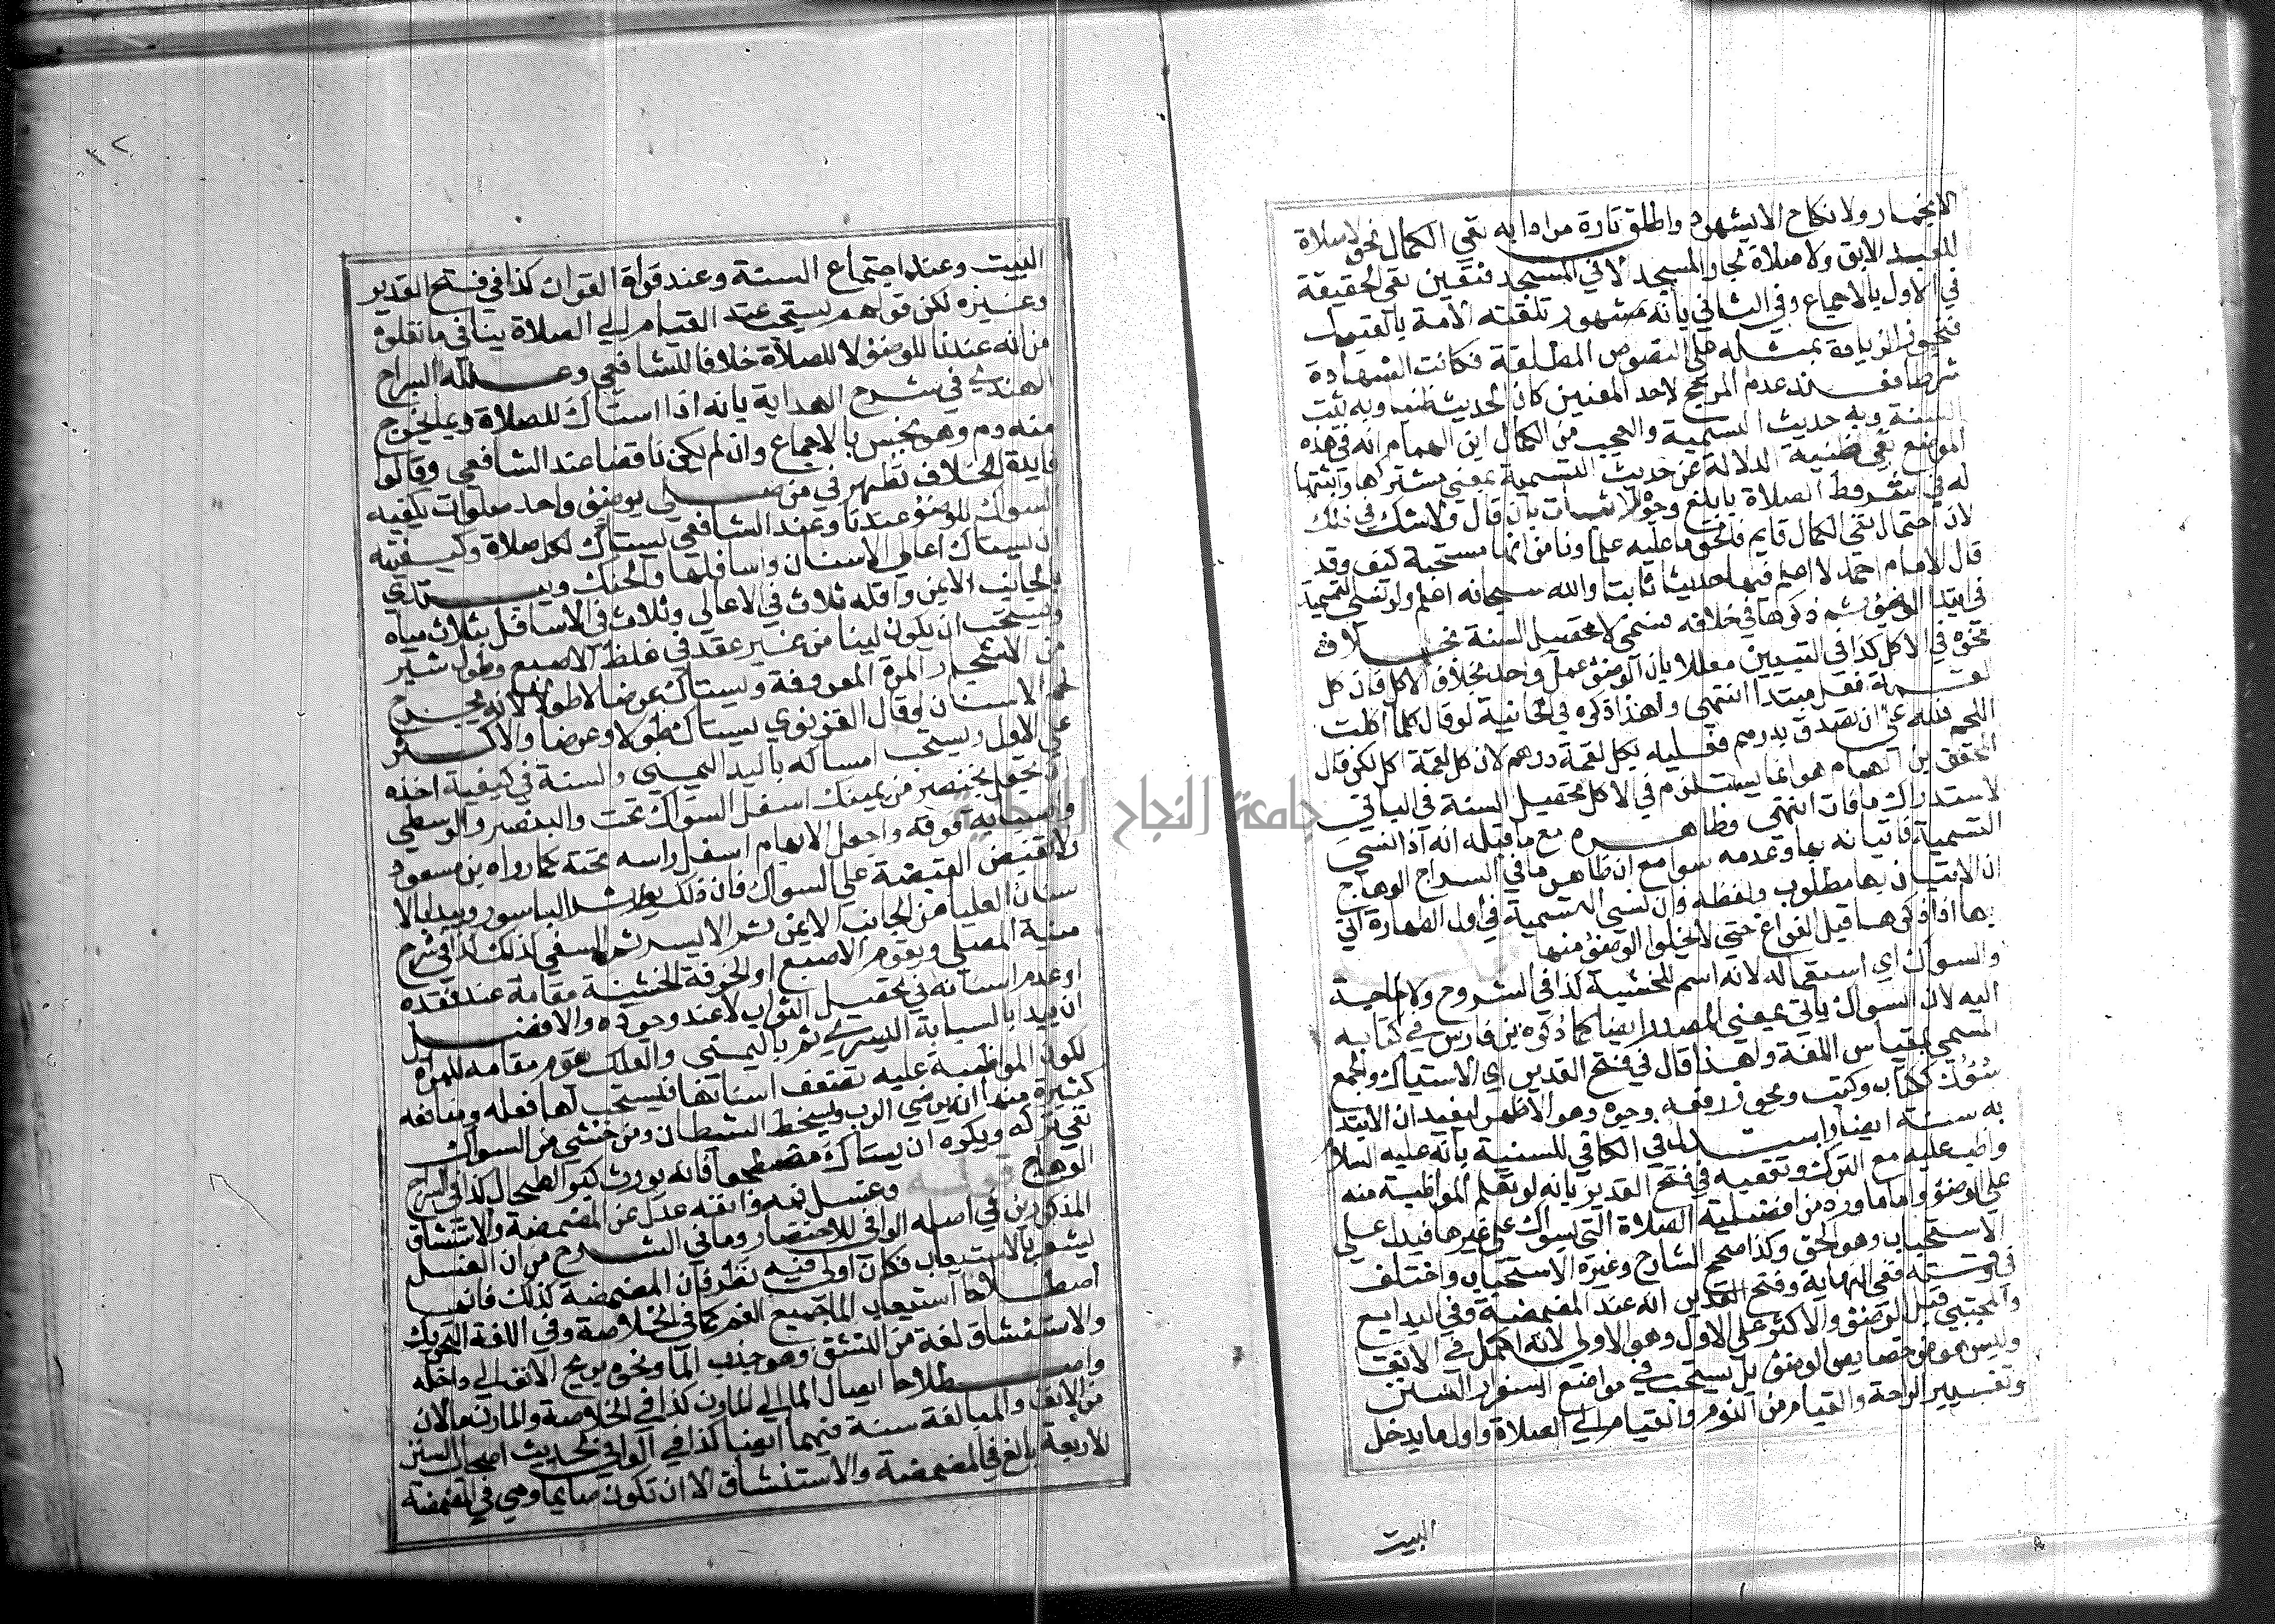 الا بخمار ولا نكاح الا بشهود واطلق تارة مرادا به نفي الكمال نحو لا صلاة
للعبد الابق ولا صلاة لجار المسجد الا في المسجد فتعين نفي الحقيقة
في الاول بالاجماع وفي الثاني بانه مشهور تلقته الامة بالقبول
فتجوز الزيادة بمثله على النصوص المطلقة فكانت الشهادة
شرطا فعند عدم المرجح لاحد المعنيين كان الحديث ظنيا وبه تثبت
السنة وبه حديث التسمية والعجب من الكمال ابن الهمام انه في هذه
الموضع نفي ظنية الدلالة عن حديث التسمية بمعنى مشتركها واثبتها
له في شروط الصلاة بابلغ وجوه الاثبات بان قال ولا شك في ذلك
لان احتمال نفي الكمال قايم فالحق ما عليه علماونا من انها مستحبة كيف وقد
قال الامام احمد لا اعلم فيها حديثا ثابتا والله سبحانه اعلم ولو نسي التسمية
في ابتدا الوضؤ ثم ذكرها في خلافه فسمى لا تحصل السنة بخلاف
نحوه في الاكل كذا في التبيين معللا بان الوضؤ عمل واحد بخلاف الاكل فان كل
لقمة فعل مبتدا انتهى ولهذا ذكره في الخانية لو قال كلما اكلت
اللحم فلله علي ان نصدق بدرهم فعليه بكل لقمة درهم لان كل لقمة اكل لكن قال
المحقق بن الهمام هو انما يستلزم في الاكل تحصيل السنة في الباقي
لاستدراك ما فات انتهى وظاهره مع ما قبله انه اذا نسي
التسمية فاتيانه بها وعدمه سوا مع ان ظاهر ما في السراج الوهاج
ان الاتيان بها مطلوب ولفظه فان نسي التسمية في اول الطهارة اتى
بها اذا ذكرها قبل الفراغ حتى لا يخلوا الوضؤ منها
والسواك اي استعماله لانه اسم للخشبة كذا في الشروح ولا حاجة
اليه لان السواك ياتي بمعنى المصدر ايضا كما ذكره بن فارس في كتابه
المسمى بمقياس اللغة ولهذا قال في فتح القدير اي الاستياك والجمع
سوك ككتاب وكتب ويجوز رفعه وجره وهو الاظهر ليفيد ان الابتدا
به سنة ايضا واستدل في الكافي للسنية بانه عليه السلام
واظب عليه مع الترك وتعقبه في فتح القدير بانه لم تعلم المواظبة منه
على الوضؤ واما ما ورد من افضلية الصلاة التي بسواك على غيرها فيدل على
الاستحباب وهو الحق وكذا صحح الشارح وغيره الاستحباب واختلف
في وقته ففي النهاية وفتح القدير انه عند المضمضة وفي البدايع
والمجتبى قبل الوضؤ والاكثر على الاول وهو الاولى لانه اكمل في الانقا
وليس هو من خصايص الوضؤ بل يستحب في مواضع اصفرار السن
وتغيير الراحة والقيام من النوم والقيام الى الصلاة واول ما يدخل
البيت
٣٢
البيت وعند اجتماع الستة وعند قراة القران كذا في فتح القدير
وغيره لكن قولهم يستحب عند القيام الى الصلاة ينافي ما نقلوه
من انه عندنا للوضؤ لا للصلاة خلافا للشافعي وعلله السراج
الهندي في شرح الهداية بانه اذا استاك للصلاة ربما يخرج
منه دم وهو نجس بالاجماع وان لم يكن ناقضا عند الشافعي وقالوا
فايدة الخلاف تظهر في من صلى بوضؤ واحد صلوات يكفيه
السواك للوضؤ عندنا وعند الشافعي يستاك لكل صلاة وكيفيته
ان يستاك اعالي الاسنان واسافلها والحنك ويبتدي
بالجانب الايمن واقله ثلاث في الاعالي وثلاث في الاسافل بثلاث مياه
ويستحب ان يكون لينا من غير عقد في غلظ الاصبع وطول شبر
من الاشجار المرة المعروفة ويستاك عرضا لا طولا لانه يجرح
لحم الاسنان وقال الغزنوي يستاك طولا وعرضا والاكثر
على الاول ويستحب امساكه باليد اليمنى والسنة في كيفية اخذه
ان تجعل الخنصر من يمينك اسفل السواك تحت والبنصر والوسطى
والسبابة فوقه واجعل الابهام اسفل راسه تحته كما رواه بن مسعود
ولا تقبض القبضة على السواك فان ذلك يورث الباسور ويبدا بالا
سنان العليا من الجانب الايمن ثم الايسر ثم السفلى كذلك كذا في شرح
منية المصلي ويقوم الاصبع او الخرقة الخشنة مقامه عند فقده
او عدم اسنانه في تحصيل الثواب لا عند وجوده والافضل
ان يبدا بالسبابة اليسرى ثم باليمنى والعلك يقوم مقامه للمراة
لكون المواظبة عليه تضعف اسنانها فيستحب لها فعله ومنافعه
كثيرة منها انه يرضي الرب ويسخط الشيطان ومن خشي من السواك
تقي تركه ويكره ان يستاك مضطجعا فانه يورث كبر الطحال كذا في السراج
الوهاج قوله وغسل فمه وانفه عدل عن المضمضة والاستنشاق
المذكورين في اصله الوافي للاختصار وما في الشرح من ان الغسل
يشعر بالاستيعاب فكان اولى فيه نظر فان المضمضة كذلك فانها
اصطلاحا استيعاب الما جميع الفم كما في الخلاصة وفي اللغة التحريك
والاستنشاق لغة من النشق وهو جذب الما ونحوه بريح الانف الى داخله
واصطلاحا ايصال الما الى المارن كذا في الخلاصة والمارن ما لان
من الانف والمبالغة سنة فيهما ايضا كذا في الوافي لحديث اصحاب السنن
الاربعة بالغ في المضمضة والاستنشاق الا ان تكون صايما وهي في المضمضة
جامعة النجاح الوطنية